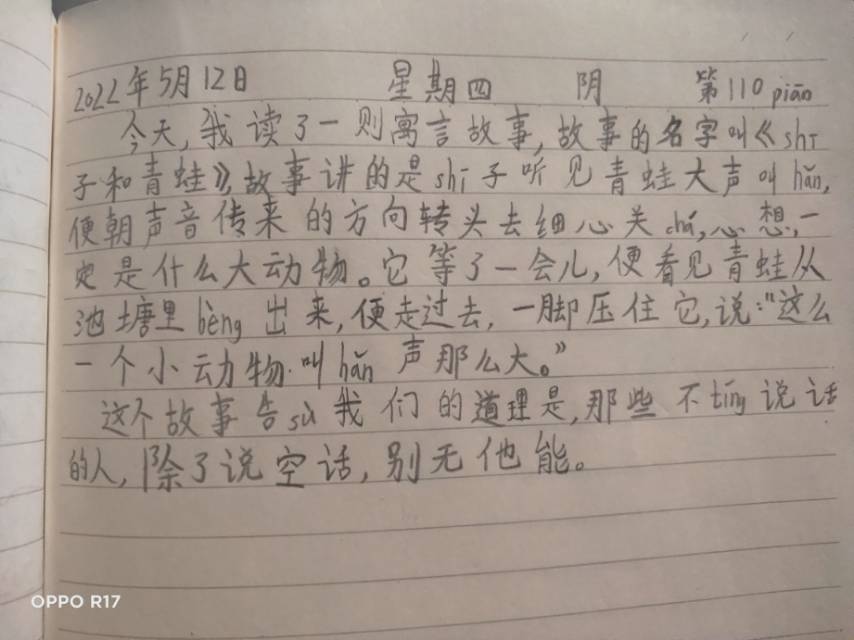 2022年5月12日 星期四 阴 第110piān
今天,我读了一则寓言故事,故事的名字叫《shī
子和青蛙》,故事讲的是shī子听见青蛙大声叫hǎn,
便朝声音传来的方向转头去细心关chá,心想,一
定是什么大动物。它等了一会儿,便看见青蛙从
池塘里bèng出来,便走过去,一脚压住它,说:"这么
一个小动物叫hǎn声那么大。"
这个故事告sù我们的道理是,那些不tíng说话
的人,除了说空话,别无他能。
OPPO R17